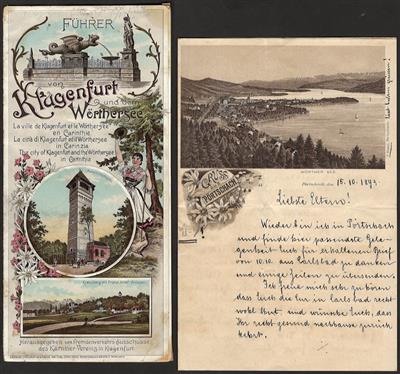 FÜHRER
von
Klagenfurt
und dem
Wörthersee
La ville de Klagenfurt et le Wörthersee
en Carinthie
La città di Klagenfurt ed il Wörthersee
in Carinzia
The city of Klagenfurt and the Wörthersee
in Carinthia
Kreuzberg mit Franz Josef-
Herausgegeben vom Fremdenverkehrs-Ausschusse
des Kärntner-Vereins in Klagenfurt.
WÖRTHER SEE
GRUSS
PÖRTSCHACH
Pörtschach, 15.10.1893
Liebste Eltern!
Wieder bin ich in Pörtschach
und finde hier passendste Gele-
genheit lieb für erhaltenen Brief
von 10.10. aus Carlsbad zu danken
und einige Zeilen zu übersenden.
Ich freue mich sehr zu hören
dass lieb die Cur in Carlsbad recht
wohl thut, und wünsche lieb, dass
Ihr recht gesund nachhause zurück
kehrt.